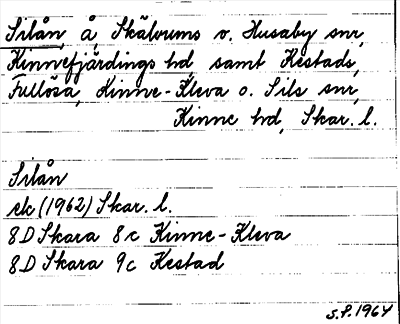 Silån, å, Skälvums o. Husaby snr,
Kinnefjärdings hd samt Kestads,
Fullösa, Kinne-Kleva o. Sils snr,
Kinne hd, Skar. l.
Silån
ek (1962) Skar. l.
8D Skara 8c Kinne-Kleva
8D Skara 9c Kestad
S.F. 1964